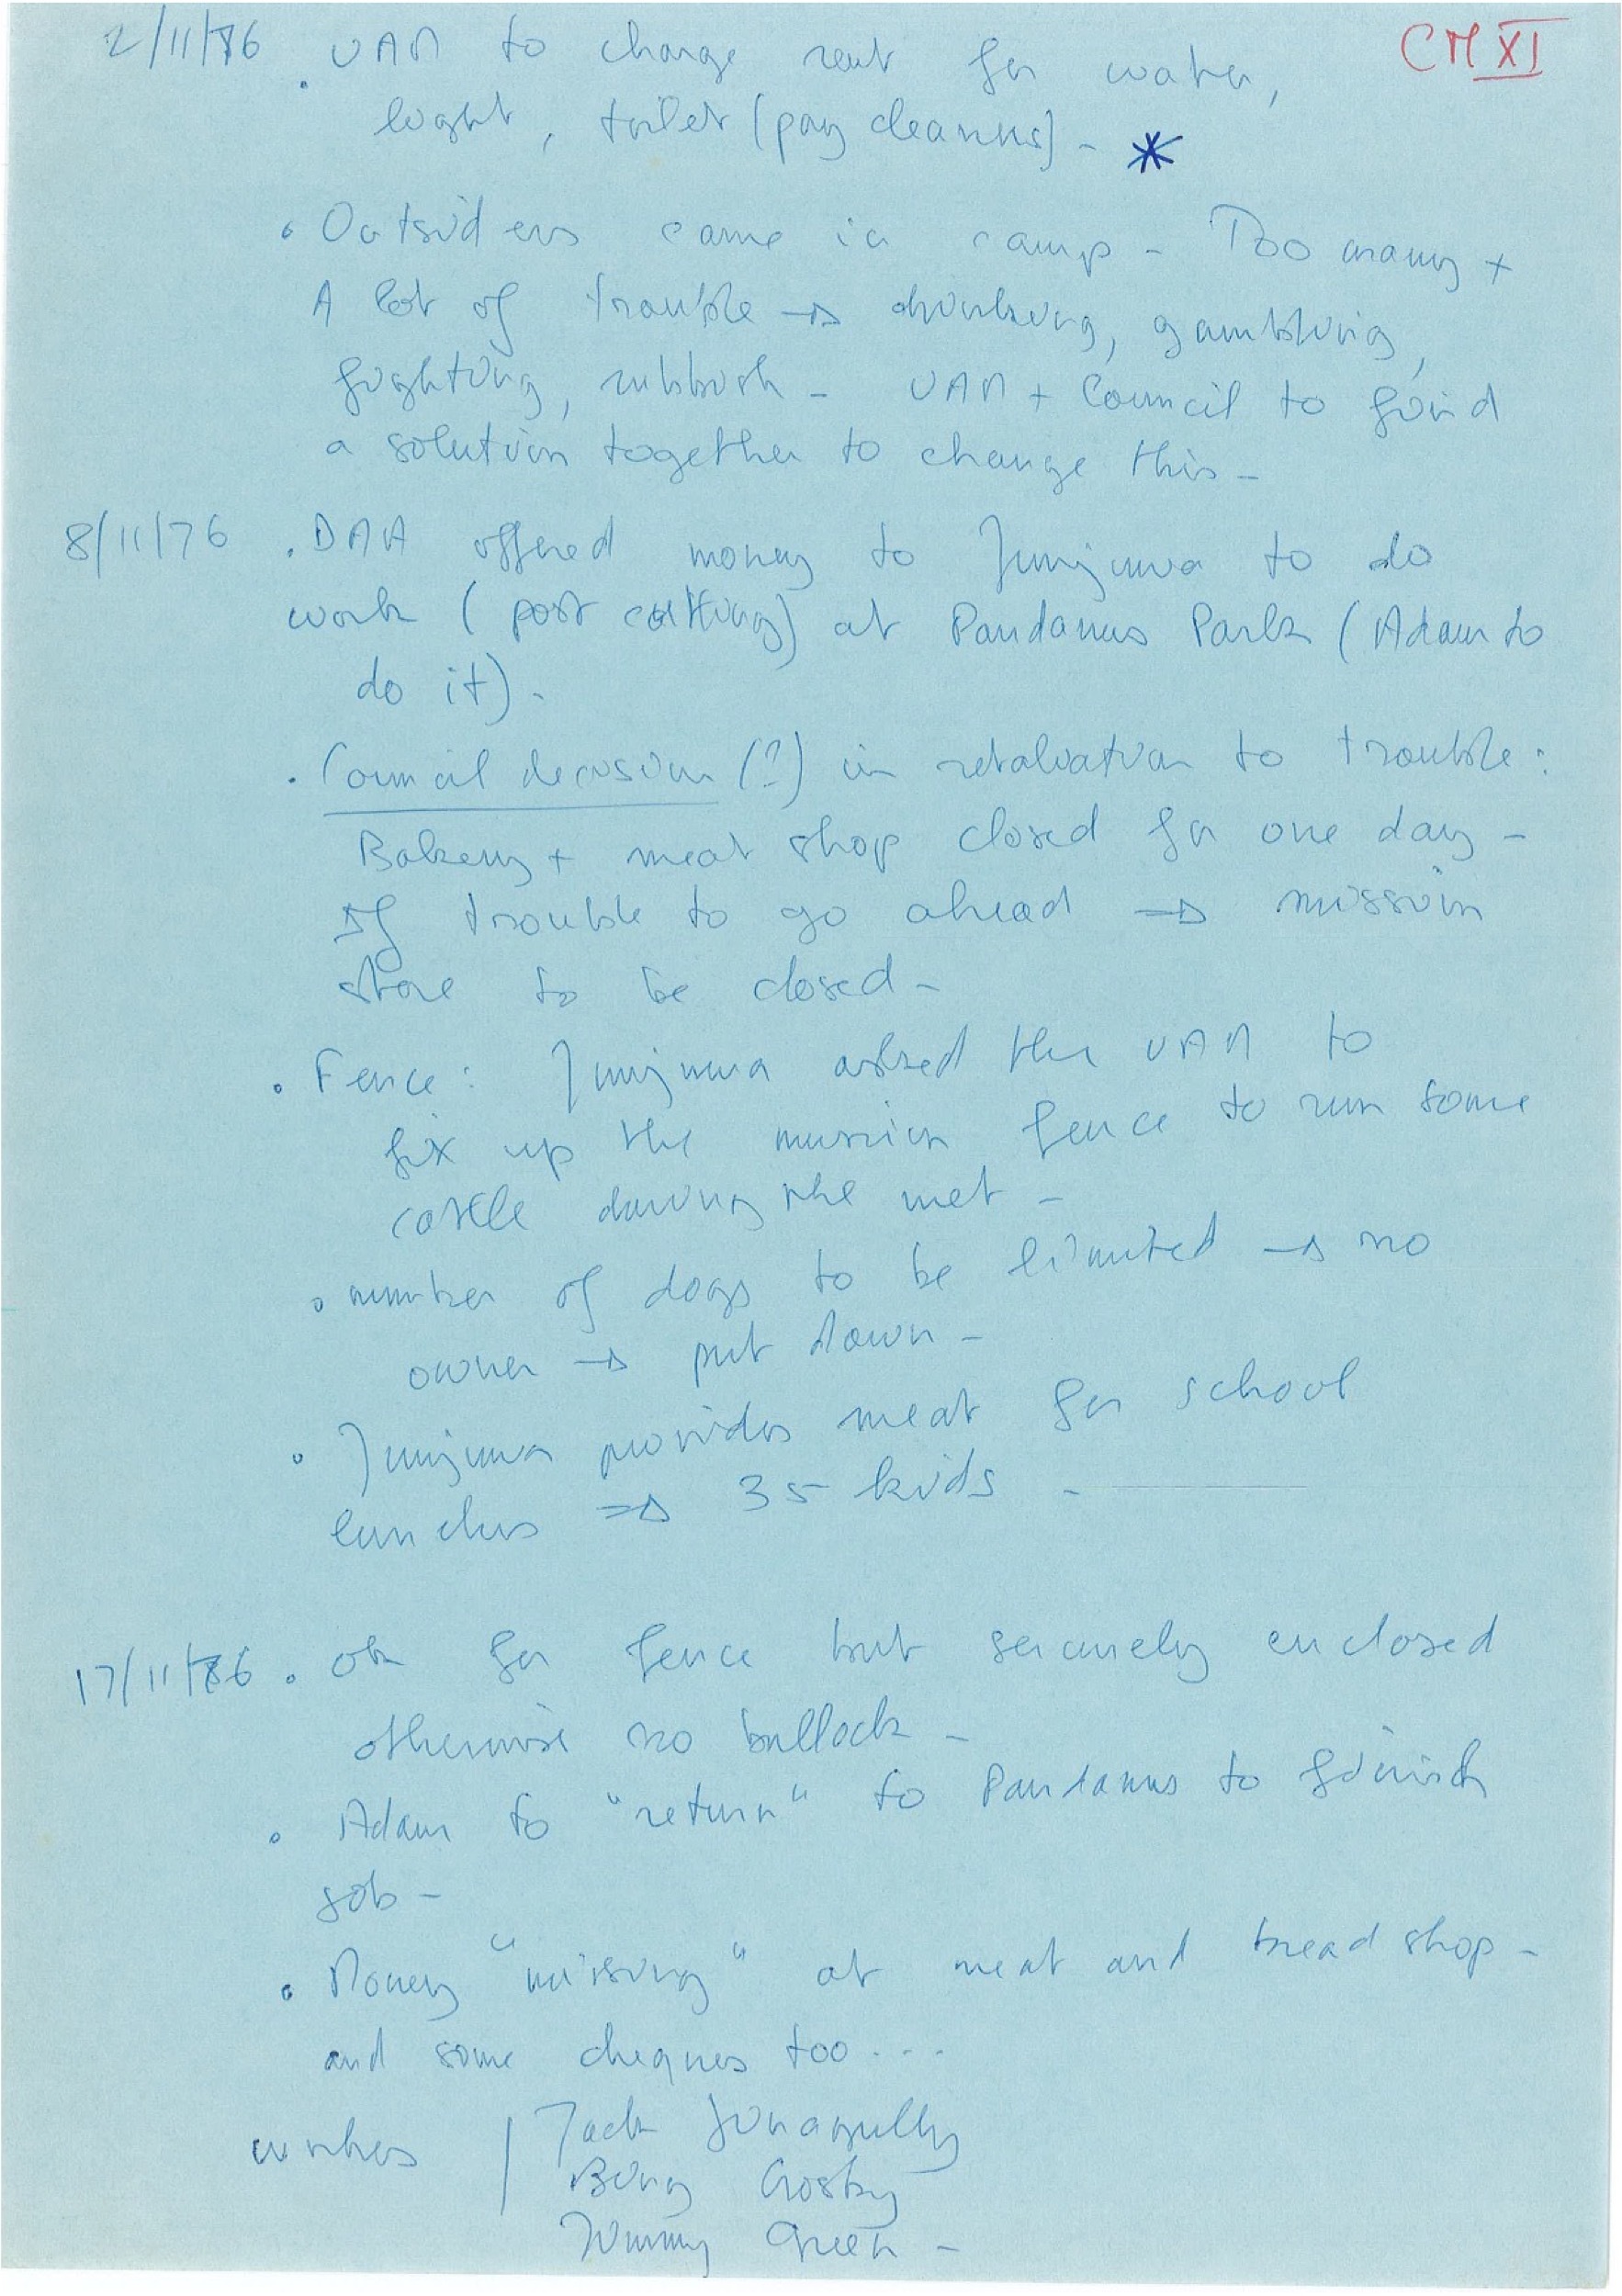 CM XI
2/11/76 . UAM to charge rent for water,
light, toilet (pay cleaners) - *
. Outsiders came in camp - Too many +
A lot of trouble → drinking, gambling,
fighting, rubbish - UAM + Council to find
a solution together to change this -
8/11/76 . DAA offered money to Junjuwa to do
work (post cutting) at Pandanus Park (Adam to
do it) -
. Council decision (?) in retaliation to trouble :
Bakery + meat shop closed for one day -
If trouble to go ahead ⇒ mission
store to be closed -
. Fence : Junjuwa asked the UAM to
fix up the mission fence to run some
cattle during the wet -
. number of dogs to be limited → no
owner → put down -
. Junjuwa provides meat for school
lunches ⇒ 35 kids -
17/11/76 . ok for fence but securely enclosed
otherwise no bullock -
. Adam to "return" to Pandanus to finish
job -
. Money "missing" at meat and bread shop -
and some cheques too ...
workers | Jack
Bing Crosby
Jimmy Green -